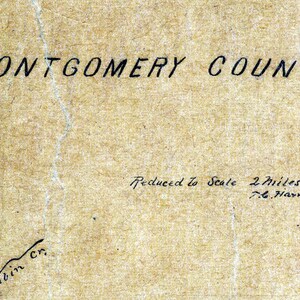 ONTGOMERY COUN
Reduced to Scale 2 Miles
T.C. Harr
bin Cr.